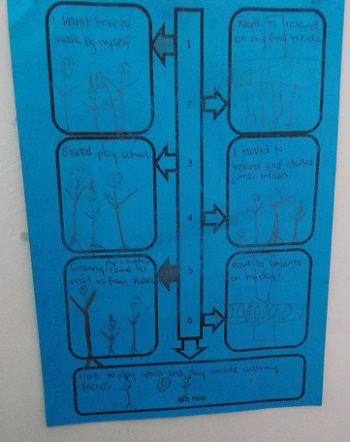 I learnt how to
walk by myself
1
Went to Ireland
on my first holiday
2
Started play school
3
I moved to
Ireland and started
junior infants
4
Granny came to
visit us from
5
Went to
on holiday
6
I love to play sports and play outside with my
friends
Me now